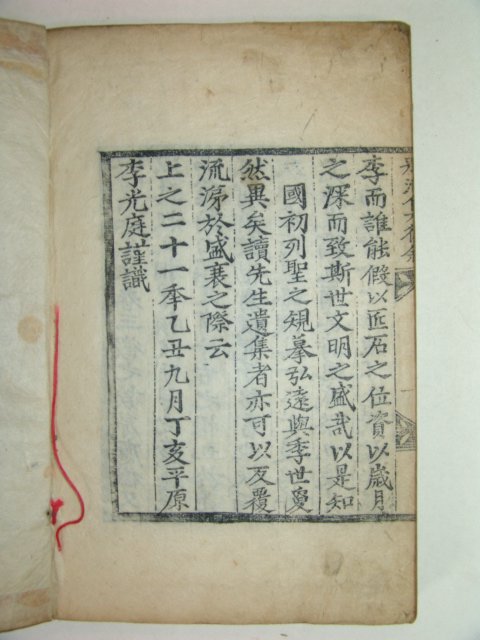 李而誰能假以匹石之位資以歲月
之深而致斯世文明之盛哉以是知
國初列聖之規摹弘遠與季世敻
然異矣讀先生遺集者亦可以反覆
流涕於盛衰之際云
上之二十一年乙丑九月丁亥平原
李光庭謹識